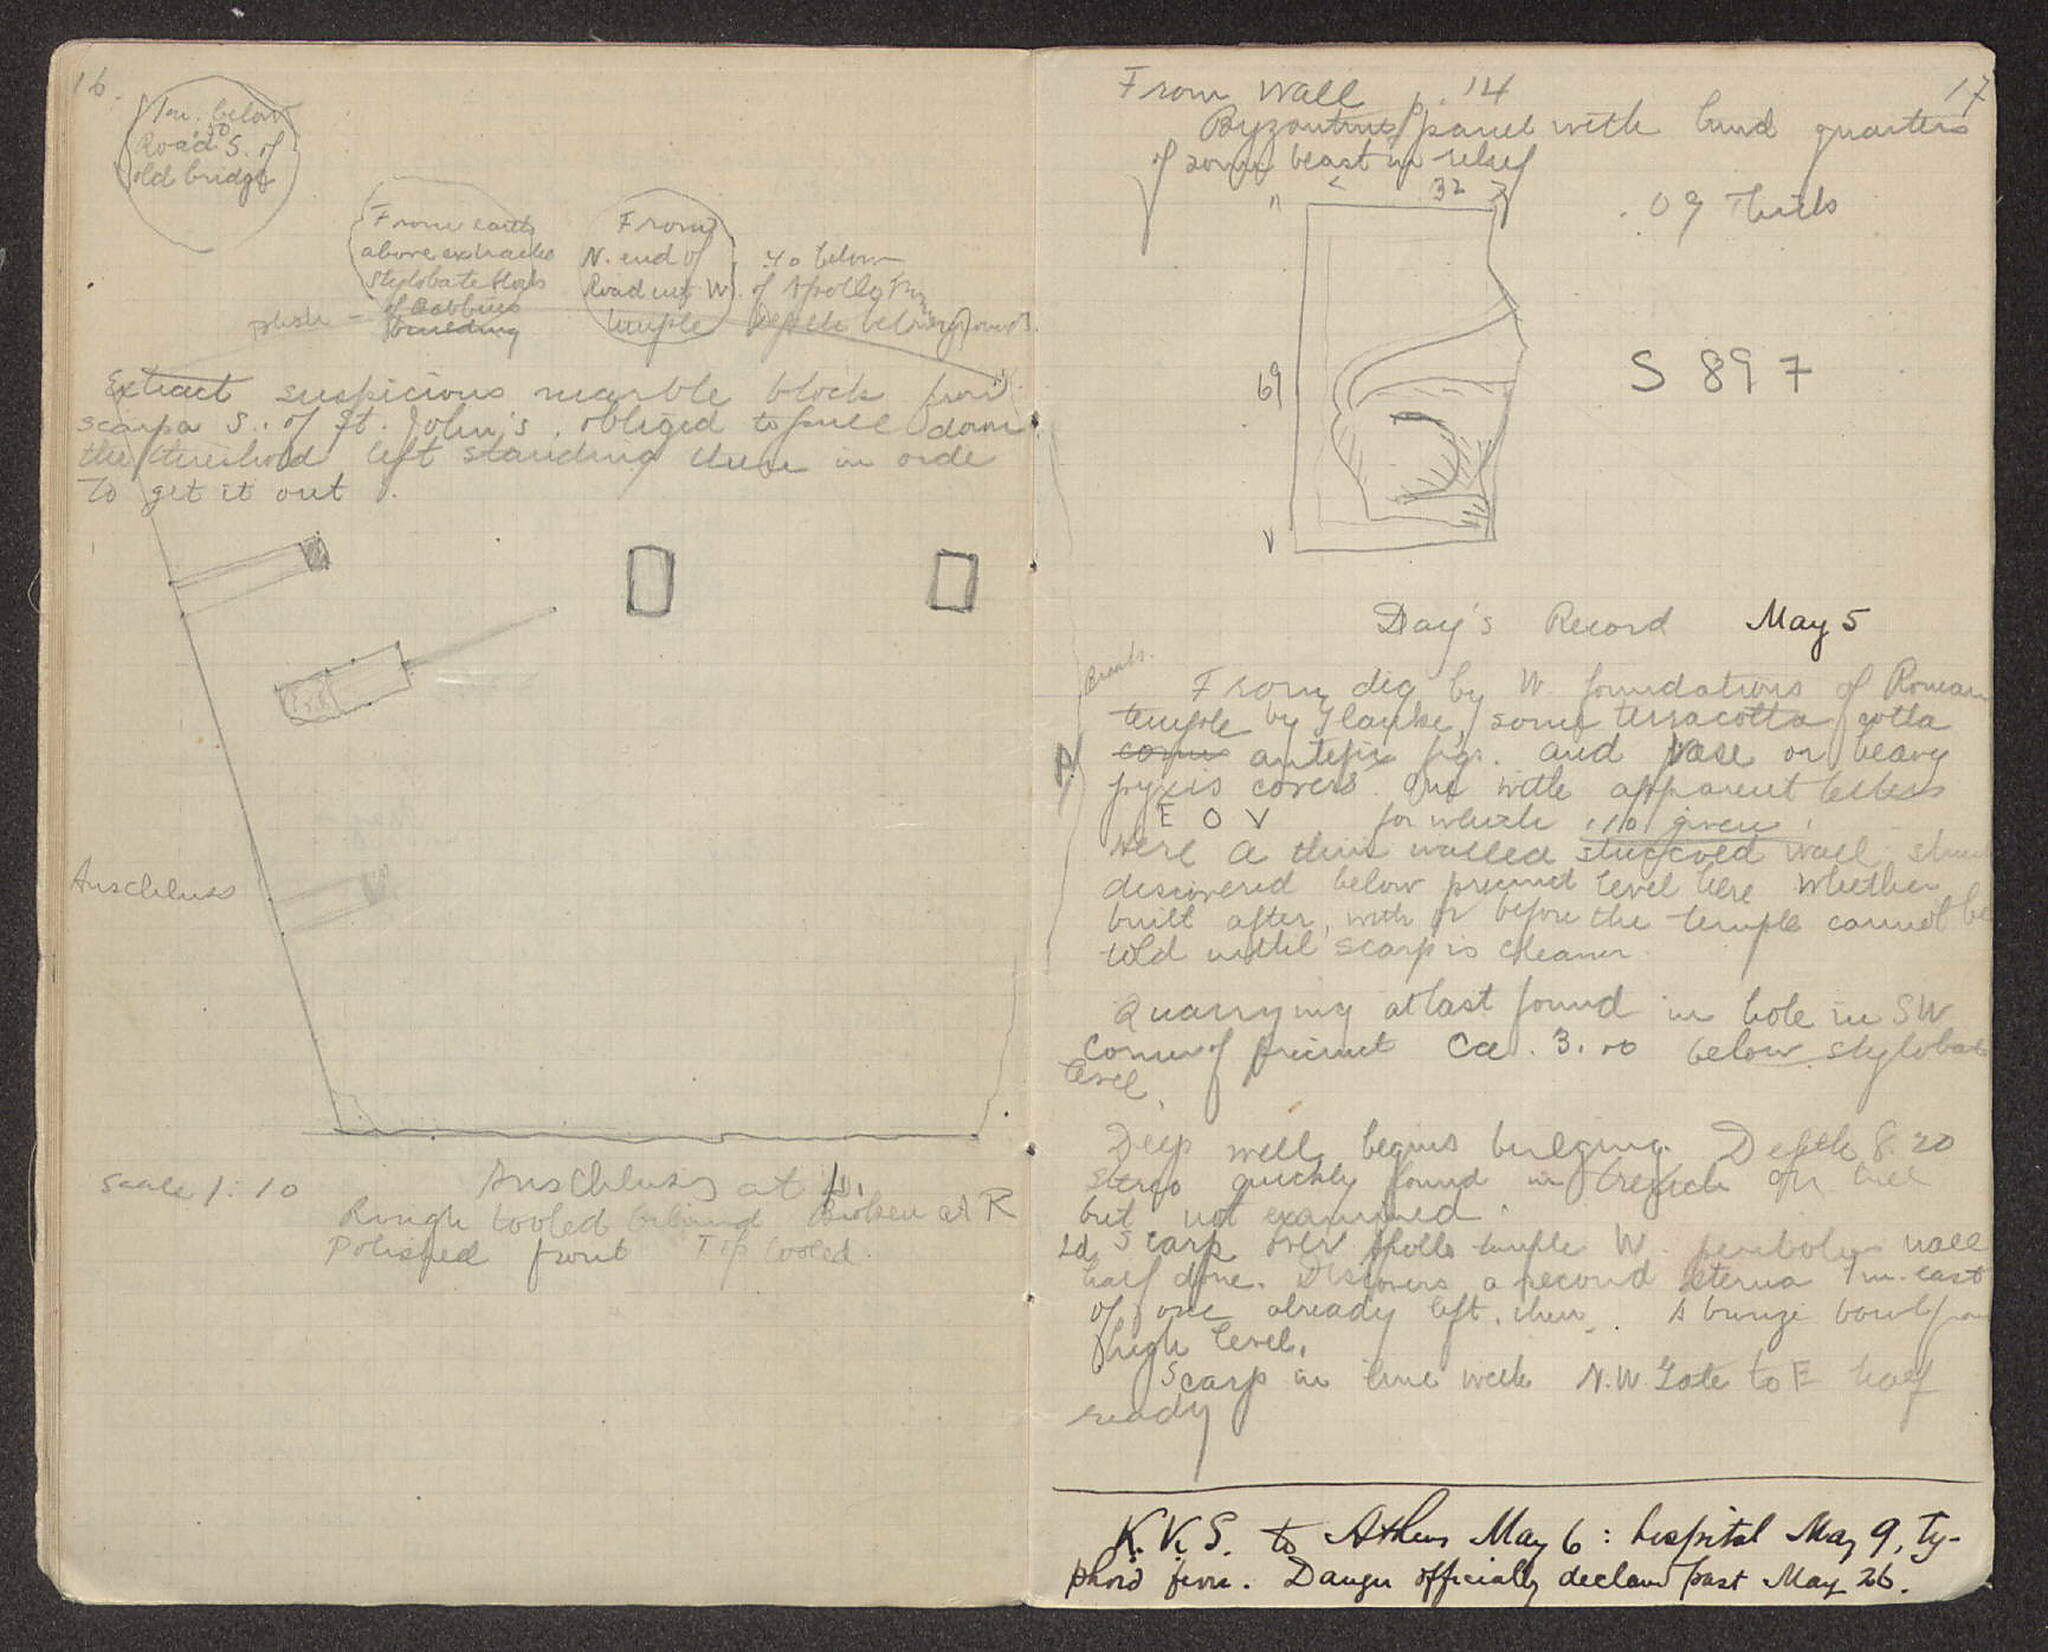 16.
1m. below
.50
Road S. of
old bridge
From earth
above extracted
stylobate block
of Robbins
building
From
N. end of
Road cut W. of Apollo
temple
.40 below
Depth below
Extract suspicious marble block from
scarp S. of St. John's. obliged to pull down
the threshold left standing there in order
to get it out.
Anschluss
Scale 1:10
Anschluss at L.
Rough tooled behind Broken at R
Polished front Top tooled.
17
From wall p. 14
Byzantine panel with hind quarters
of some beast in relief
.32
.09 Thick
69
S 897
Day's Record May 5
From dig by W. foundations of Roman
temple by Glauke, some terracotta
antefix frgs. and vase or heavy
pyxis covers. One with apparent letters
E O V for which .10 given.
Here a thin walled stuccoed wall
discovered below precinct level here whether
built after, with or before the temple cannot be
told until scarp is cleaner.
Quarrying at last found in hole in SW
corner of precinct ca. 3.00 below stylobate
level.
Deep well begins bulging. Depth 8.20
Stereo quickly found in trench on hill
but not examined.
Scarp over Apollo temple W. peribolos wall
half done. Discovers a second 1m. east
of one already left there. A bronze bowl from
high level.
Scarp in line with N.W. Gate to E half
ready
K.V.S. to Athens May 6: hospital May 9, Ty-
phoid fever. Danger officially declared past May 26.